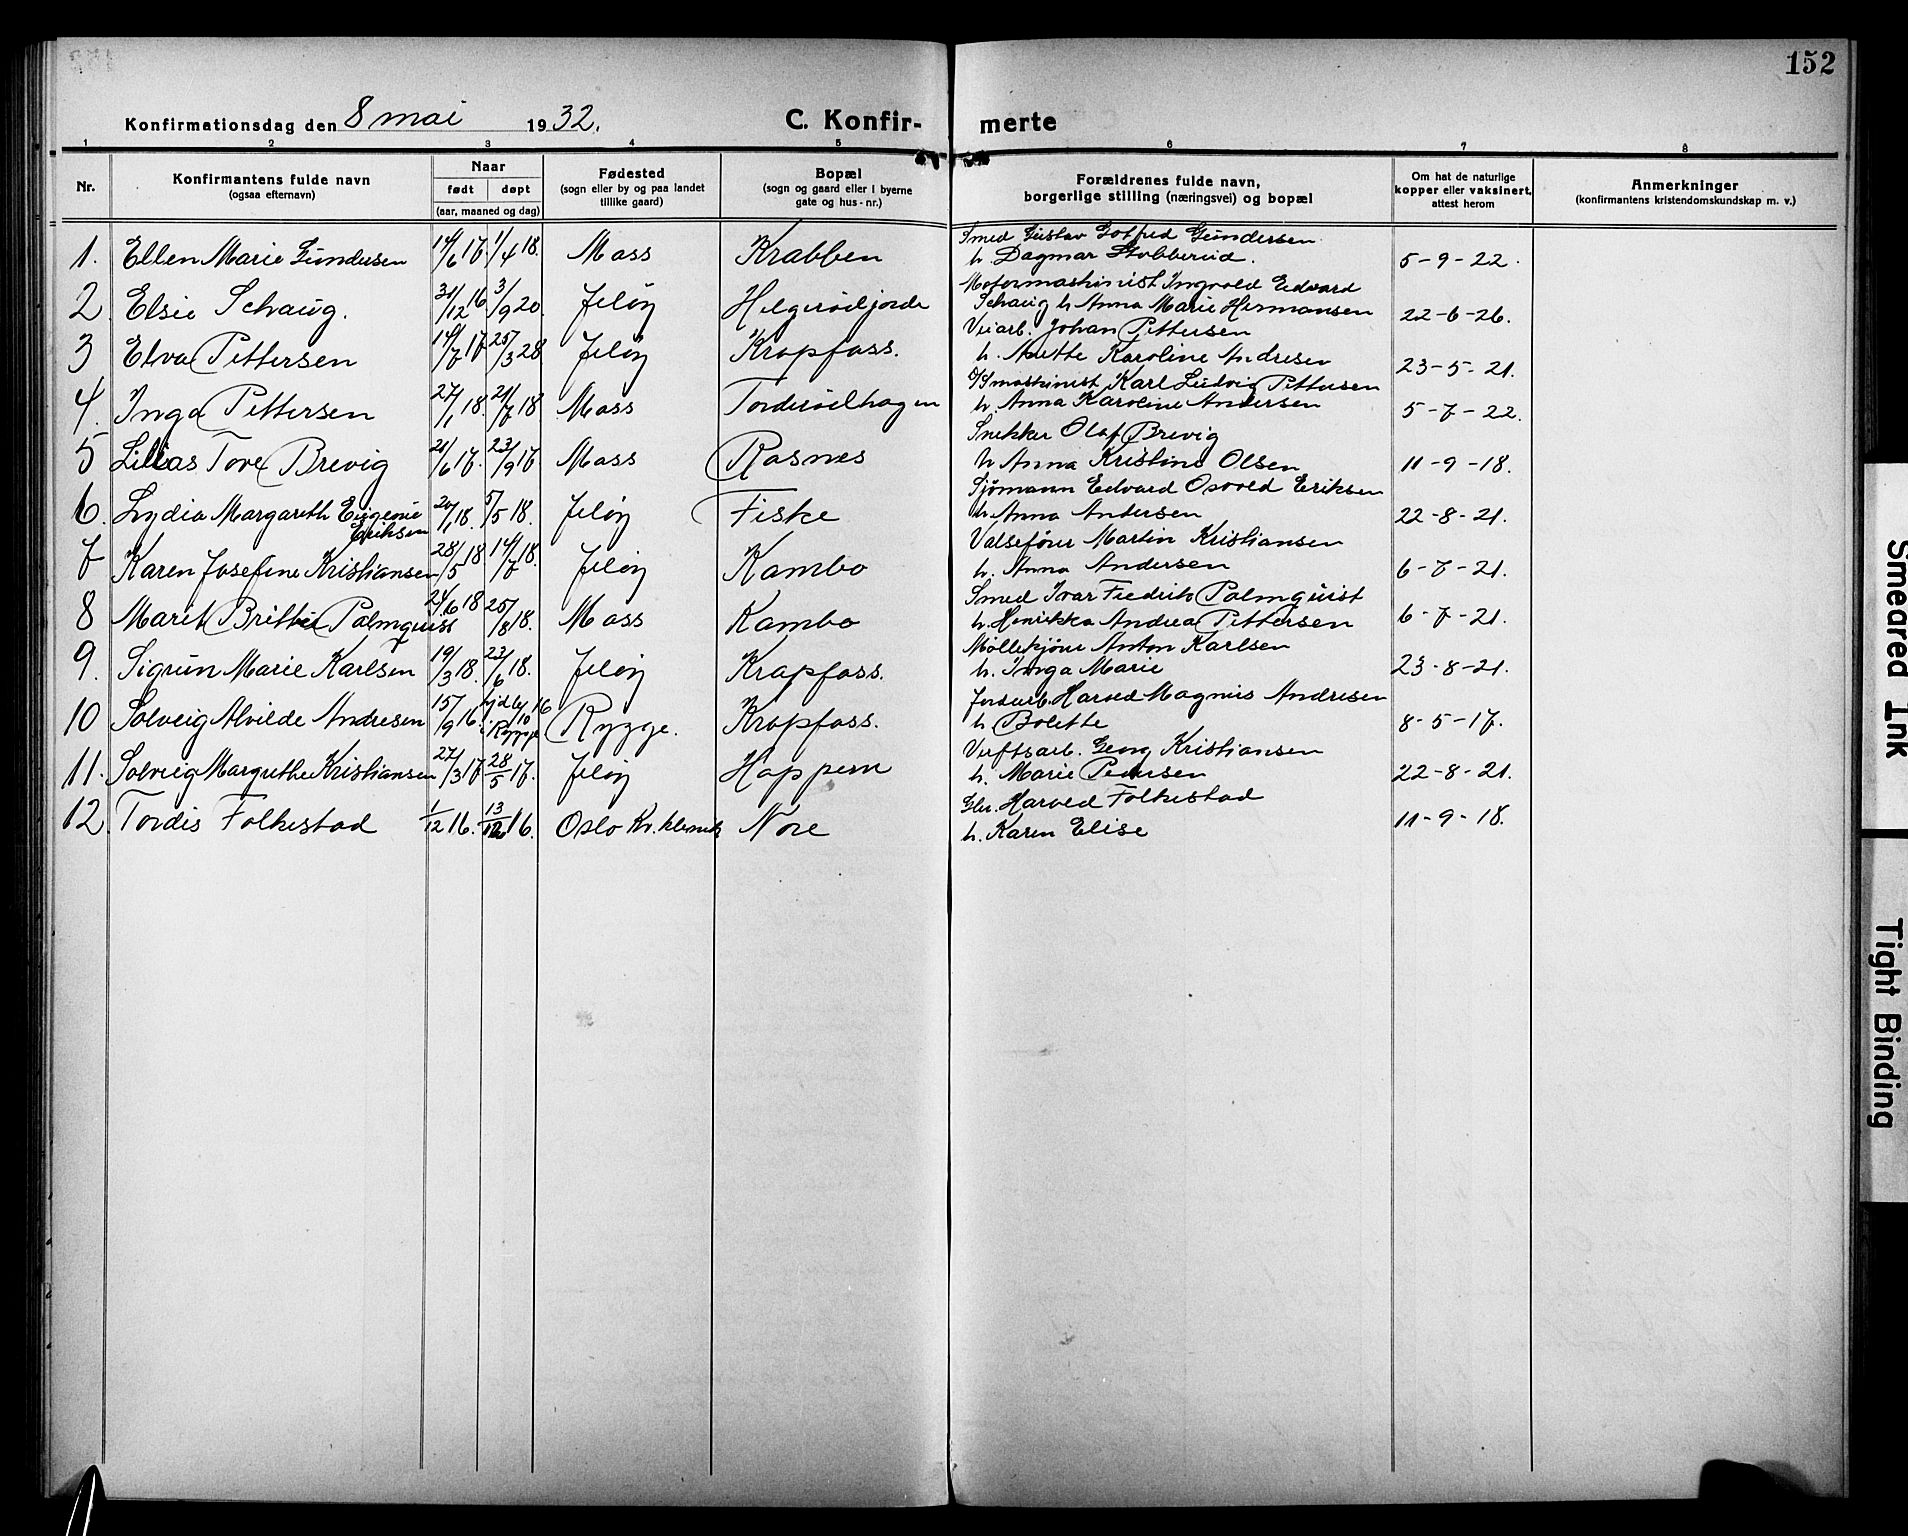 152
Konfirmationsdag den 8 mai 1932.
C. Konfir-merte
1 2 3 4 5 6 7 8
Nr.
Konfirmantens fulde navn
(ogsaa efternavn)
Naar
født døpt
(aar, maaned og dag)
Fødested
(sogn eller by og paa landet
tillike gaard)
Bopæl
(sogn og gaard eller i byerne
gate og hus-nr.)
Forældrenes fulde navn,
borgerlige stilling (næringsvei) og bopæl
Om hat de naturlige
kopper eller vaksinert,
attest herom
Anmerkninger
(konfirmantens kristendomskundskap m. v.)
Smed Gustav Gotfred Gundersen
1. Ellen Marie Gundersen 14/6 17. 1/4 18. Moss Krabben h. Dagmar Stobberud. 5-9-22.
Motormaskinist Ingvald Edvard
2. Elsie Schaug. 31/12 16 3/9 20. Jeløy Helgerødjorde Schaug h Anna Marie Hermansen 22-6-26.
Veiarb. Johan Pettersen
3 Elva Pettersen 14/7 17 25/3 28 Jeløy Kropfoss. h. Anette Karoline Andresen 23-5-21.
D/Smaskinist Karl Ludvig Pettersen
4. Inga Pettersen 27/1 18. 21/7 18 Moss Torderødhagen h. Anna Karoline Andersen 5-7-22.
Snekker Olaf Brevig
5 Lillias Tove Brevig 21/6 17. 23/9 17 Moss Rosnes h Anna Kristine Olsen 11-9-18.
Sjømann Edvard Osvold Eriksen
6. Lydia Margareth Eugenie Eriksen 20/1 18. 5/5 18. Jeløy Fiske h. Anna Andersen 22-8-21.
Valsefører Martin Kristiansen
7 Karen Josefine Kristiansen 28/5 18 14/7 18. Jeløy Kambo h. Anna Andersen 6-7-21.
Smed Ivar Fredrik Palmquist
8 Marit Britta Palmquist 24/6 18 25/8 18. Moss Kambo h. Henrikka Andrea Pettersen 6-7-21.
Møllekjører Anton Karlsen
9. Sigrun Marie Karlsen 19/3 18. 23/6 18. Jeløy Kropfoss. h. Inga Marie 23-8-21.
Jordarb. Harold Magnus Andresen
10 Solveig Alvilde Andresen 15/9 16. hjdby 16 i Rygge Rygge. Kropfoss. h Bolette 8-5-17.
Verftsarb. Georg Kristiansen
11. Solveig Margrethe Kristiansen 27/3 17 28/5 17. Jeløy Hoppern h. Marie Pedersen 22-8-21.
Harold Folkestad
12 Tordis Folkestad 1/12 16. 13/12 16. Oslo Kv.klinik Nore h. Karen Elise 11-9-18.
Smeared Ink
Tight Binding